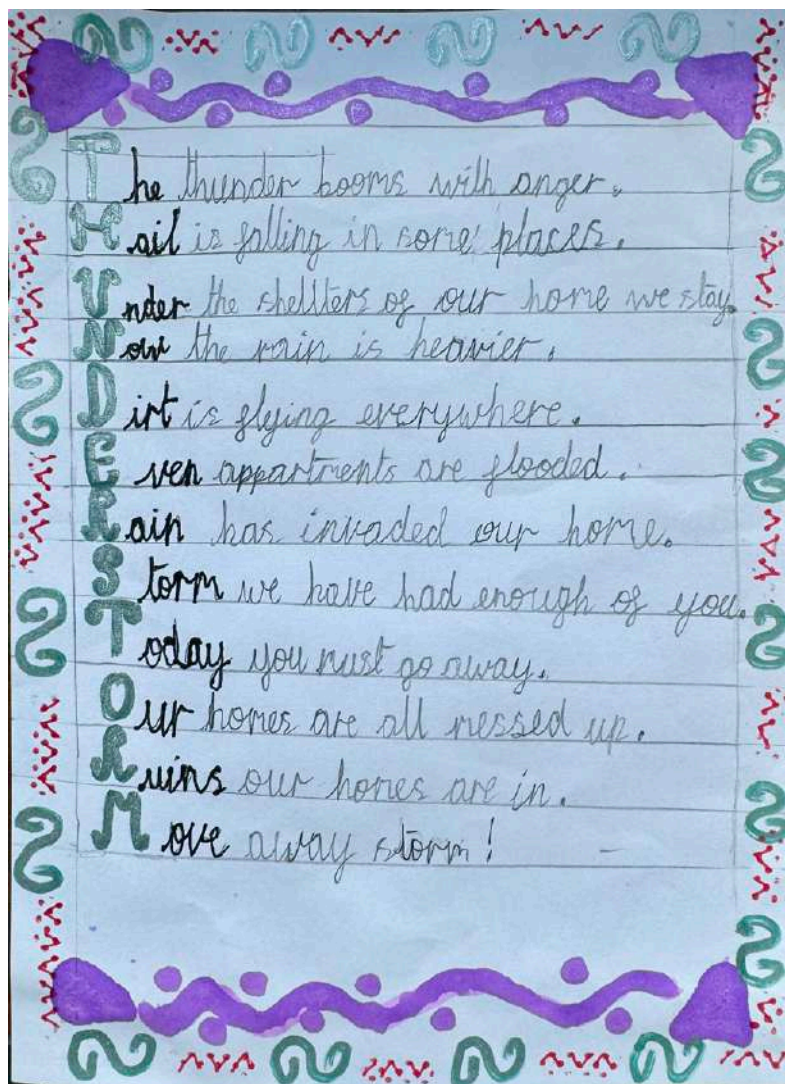 The thunder booms with anger.
Hail is falling in some places.
Under the shellters of our home we stay.
Now the rain is heavier.
Dirt is flying everywhere.
Even appartments are flooded.
Rain has invaded our home.
Storm we have had enough of you.
Today you must go away.
Our homes are all messed up.
Ruins our homes are in.
Move away storm!